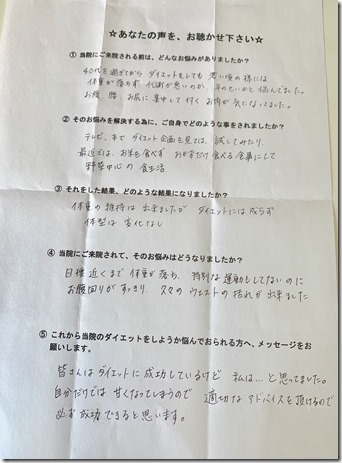 ☆あなたの声を、お聴かせ下さい☆
① 当院にご来院される前は、どんなお悩みがありましたか？
40代を過ぎてから ダイエットをしても 若い頃の様には
体重が落ちず、代謝が悪いのか、年のせいかと 悩んでました。
お腹 腰 お尻に 集中して 付く お肉が 気になってました。
② そのお悩みを解決する為に、ご自身でどのような事をされましたか？
テレビ、本で ダイエット企画を見ては、試してみたり、
最近では、お米を食べず おかずだけ食べる食事にして
野菜中心の 食生活
③ それをした結果、どのような結果になりましたか？
体重の 維持は 出来ましたが ダイエットには 成らず
体型は 変化なし
④ 当院にご来院されて、そのお悩みはどうなりましたか？
目標 近くまで 体重が 落ち、特別な 運動も してないのに
お腹回りが すっきり 久々の ウエストの 括れが 出来ました
⑤ これから当院のダイエットをしようか悩んでおられる方へ、メッセージをお
願いします。
皆さんは ダイエットに 成功しているけど 私は… と 思ってました。
自分だけでは 甘くなってしまうので 適切な アドバイスを 頂けるので
必ず 成功できると 思います。